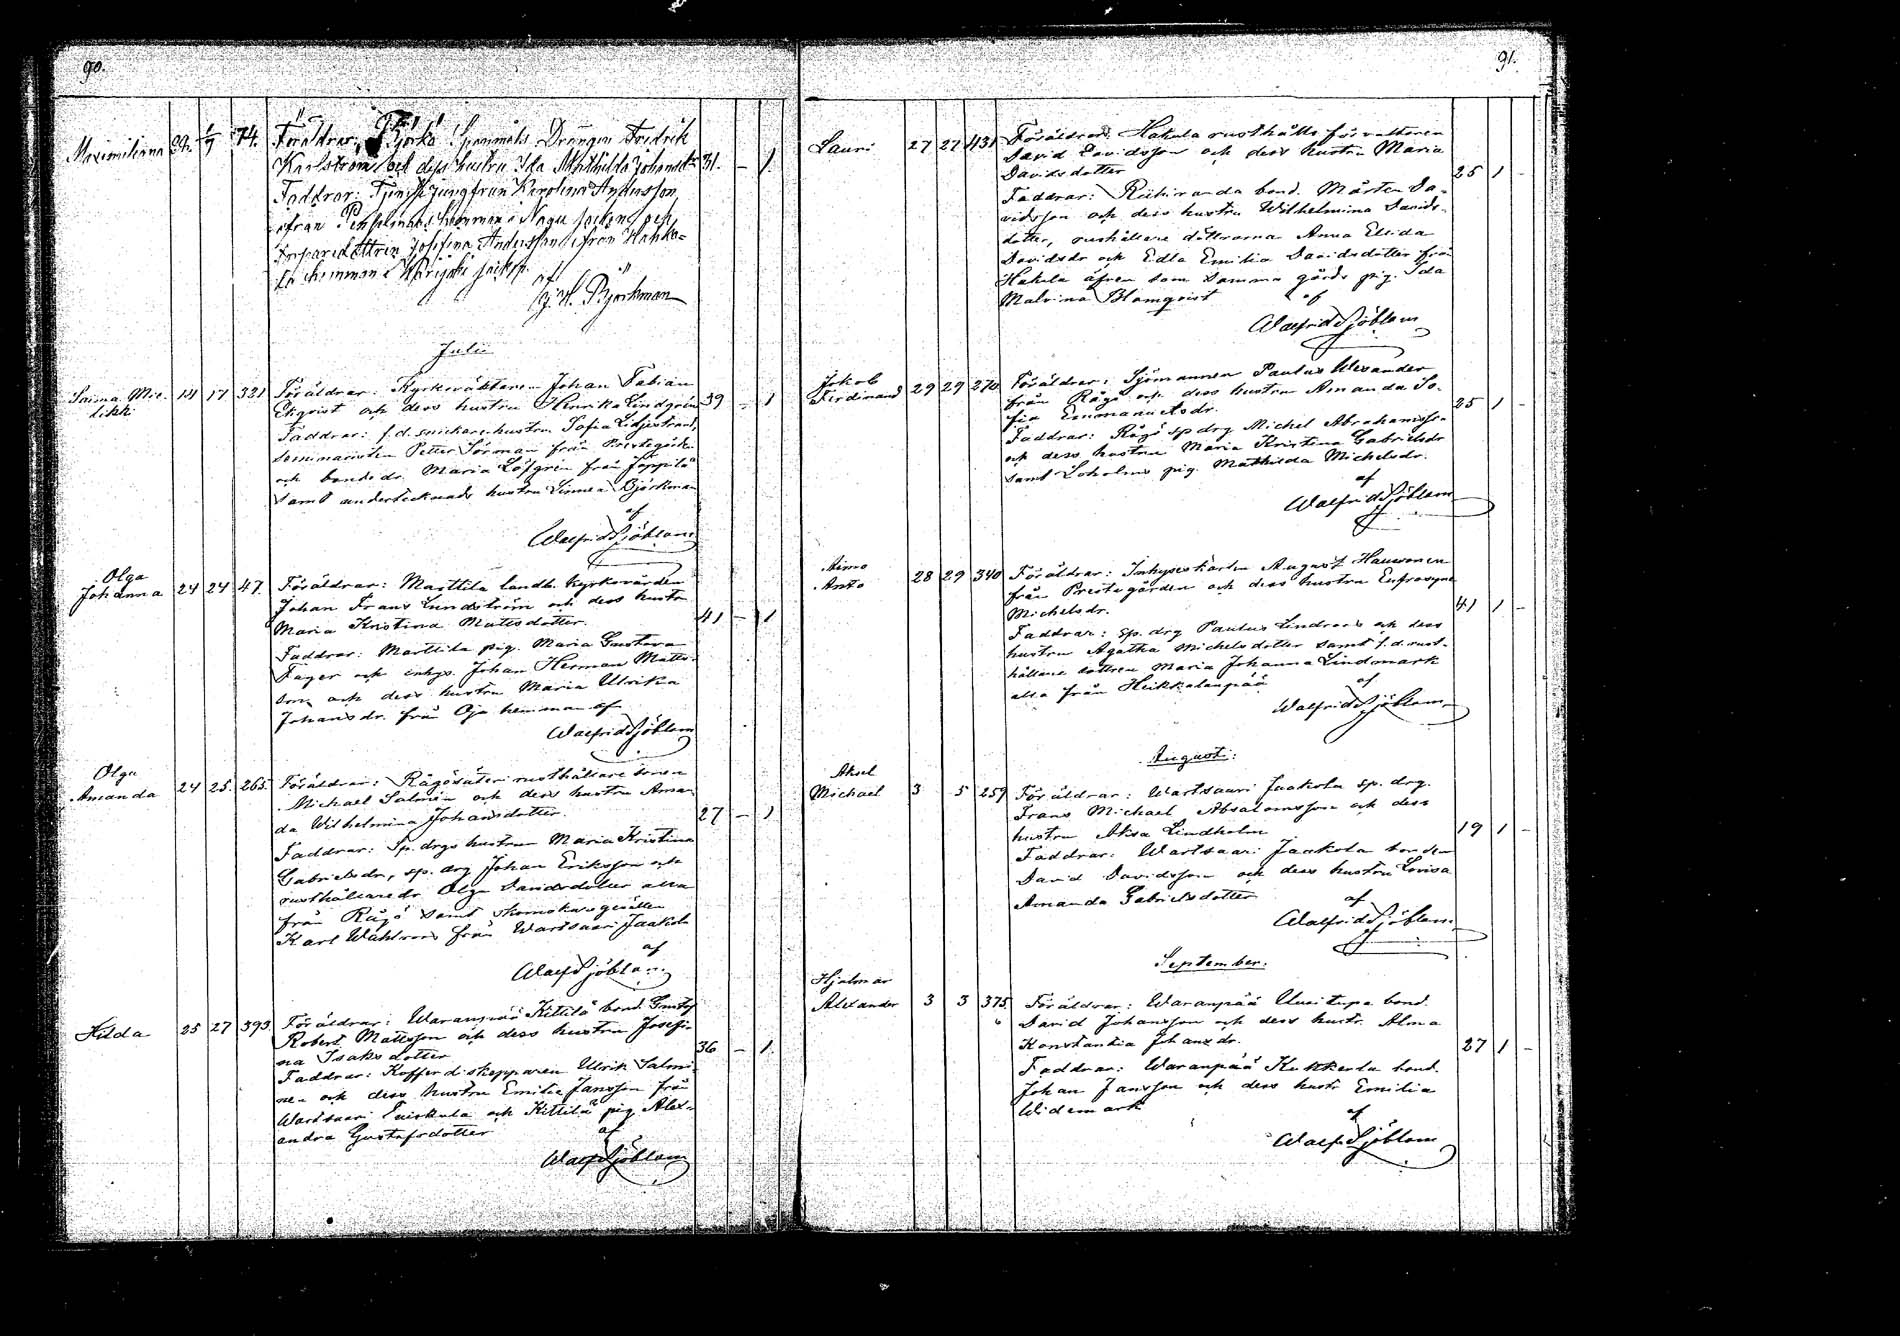 90.
Maximiliana 22. 1/7 74. Föräldrar: Björkö Spannmåls Drängen Fredrik
Karlström och dess hustru Ida Mathilda Johansdr 31. – 1.
Faddrar: Tjenste jungfrun Karolina Andersson
ifrån hemman i Nagu socken och
dottren Josefina Andersson ifrån
hemman i socken.
af
J. H. Björkman
Juli
Saima Mie-
likki 14 17 321 Föräldrar: Kyrkväktaren Johan Fabian
Ekqvist och dess hustru Henrika Lindgrén 39 – 1
Faddrar: f.d. snickare hustru Sofia Liljestrand,
seminaristen Petter Sörman från Prestegården
och bondedr. Maria Löfgren från Jöppilä
samt undertecknads hustru Linnea Björkman
af
Walfrid Sjöblom
Olga
Johanna 24 24 47. Föräldrar: Marttila landb. kyrkovärden
Johan Frans Lundström och dess hustr.
Maria Kristina Matsdotter. 41 – 1
Faddrar: Marttila pig. Maria Gustava
Fager och inhys. Johan Herman Matts-
son och dess hustru Maria Ulrika
Johansdr. från Oja hemman af
Walfrid Sjöblom
Olga
Amanda 24 25. 265. Föräldrar: Rågösäteri rusthållare sonen
Michael Salmén och dess hustru Aman-
da Wilhelmina Johansdotter. 27 – 1
Faddrar: Sp. drgs hustrun Maria Kristina
Gabrielsdr, sp. drg Johan Eriksson och
rusthållaredr. Olga Davidsdotter alla
från Rågö samt skomakaregesällen
Karl Wahlroos från Wartsaari Jaakola
af
Walf. Sjöblom
Hilda 25 27 393. Föräldrar: Waranpää Kittilä bond. Gustaf
Robert Mattsson och dess hustru Josefi-
na Isaksdotter 36 – 1.
Faddrar: Kofferdiskepparen Ulrik Salmi-
nen och dess hustru Emilia Jansson från
Wartsaari och Kittilä pig. Alex-
andra Gustafsdotter af
Walf. Sjöblom
91.
Lauri 27 27 431 Föräldrar: Hakula rusthålls förvaltaren
David Davidsson och dess hustru Maria
Davidsdotter 25 1 –
Faddrar: Riihiranda bond. Mårten Da-
vidsson och dess hustru Wilhelmina Davids-
dotter, rushållare döttrarna Anna Elida
Davidsdr och Edla Emilia Davidsdotter från
Hakula äfven som samma gårds pig. Ida
Malvina Blomqvist af
Walfrid Sjöblom
Jokob
Ferdinand 29 29 270 Föräldrar: Sjömannen Paulus Alexander
från Rågö och dess hustru Amanda So-
fia Emmanuelsdr. 25 1 –
Faddrar: Rågö sp drg Michel Abrahamsson
och dess hustru Maria Kristina Gabrielsdr
samt Loholms pig. Mathilda Michelsdr.
af
Walfrid Sjöblom
Aimo
Anto 28 29 340 Föräldrar: Inhyseskarlen August Hauvonen
från Prestegården och dess hustru Eufrosyne
Michelsdr. 41 1 –
Faddrar: sp. drg Paulus Lindroos och dess
hustru Agatha Michelsdotter samt f.d. rust-
hållare dottren Maria Johanna Lindmark
alla från Heikkalanpää af
Walfrid Sjöblom
Augusti:
Aksel
Michael 3 5 259 Föräldrar: Wartsaari Jaakola sp. drg.
Frans Michael Absalomsson och dess
hustru Alisa Lindholm 19 1 –
Faddrar: Wartsaari Jaakola bonden
David Davidsson och dess hustru Lovisa
Amanda Gabrielsdotter af
Walfrid Sjöblom
September:
Hjalmar
Alexander 3 3 375 Föräldrar: Waranpää Uusitupa bond.
David Johansson och dess hustr. Alma
Konstantia Johansdr. 27 1 –
Faddrar: Waranpää Kukkerla bond.
Johan Jansson och dess hustr Emilia
Widemark af
Walf. Sjöblom